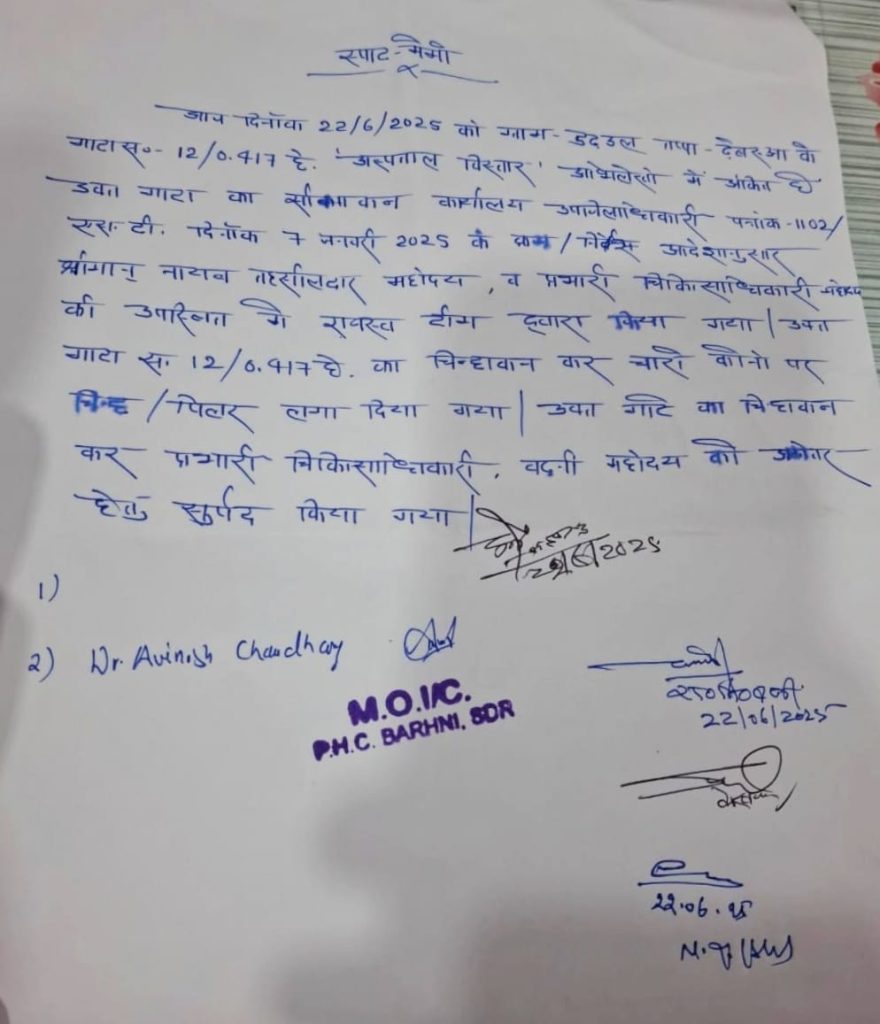 स्पाट-मेमो
आज दिनाँक 22/6/2025 को ग्राम- डढउल तप्पा - देबरुआ के
गाटा सं०- 12/0.417 हे. 'अस्पताल विस्तार' अभिलेखो में अंकित है
उक्त गाटा का सीमावान कार्यालय उपजिलाधिकारी पत्रांक-1102/
एस.टी. दिनाँक 7 जनवरी 2025 के क्रम / निर्देश आदेशानुसार
श्रीमान् नायब तहसीलदार महोदय , व प्रभारी चिकित्साधिकारी महोदय
की उपस्थित मे राजस्व टीम द्वारा किया गया | उक्त
गाटा सं. 12/0.417 हे. का चिन्हावान कर चारो कोनो पर
चिन्ह / पिलर लगा दिया गया | उक्त गाटे का चिन्हावान
कर प्रभारी चिकित्साधिकारी, बढ़नी महोदय को
हेतु सुर्पद किया गया |
22/6/2025
1)
2) Dr. Avinash Chaudhary
M.O.I/C.
P.H.C. BARHNI, SDR
22/06/2025
लेखपाल
22.06.25